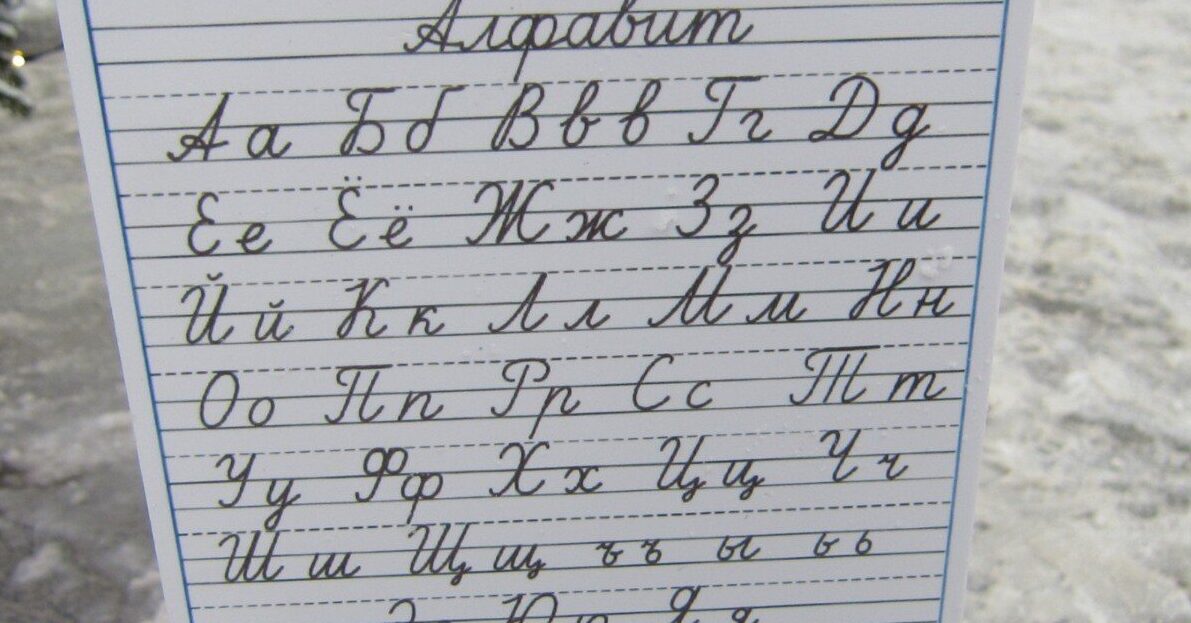 Алфавит
Аа Бб Ввв Гг Дд
Ее Ёё Жж Зз Ии
Йй Кк Лл Мм Нн
Оо Пп Рр Сс Тт
Уу Фф Хх Цц Чч
Шш Щщ ъъ ы ьь
Юю Яя